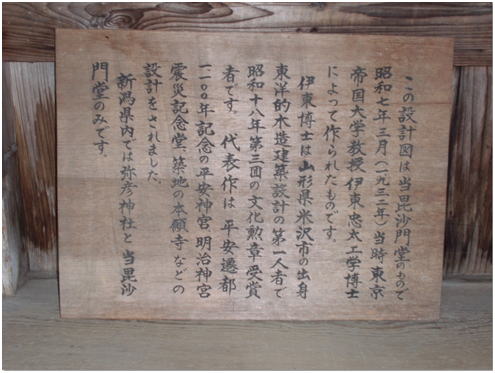 この設計図は当毘沙門堂のもので
昭和七年三月(一九三二年)当時東京
帝国大学教授伊東忠太工学博士
によって作られたものです。
伊東博士は山形県米沢市の出身
東洋的木造建築設計の第一人者で
昭和十八年第三回の文化勲章受賞
者です。代表作は平安遷都
一一〇〇年記念の平安神宮、明治神宮
震災記念堂、築地の本願寺などの
設計をされました。
新潟県内では弥彦神社と当毘沙
門堂のみです。